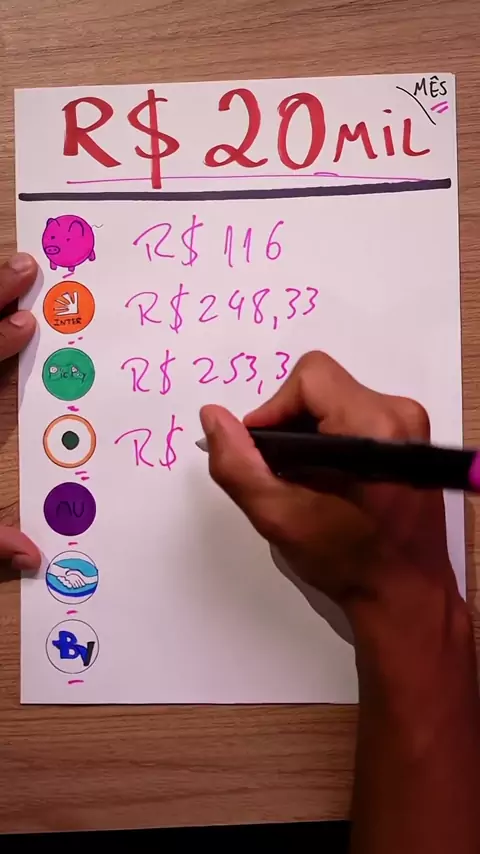 R$ 20 MIL
MÊS
R$ 116
INTER R$ 248,33
PicPay R$ 253,3
R$
NU
BV